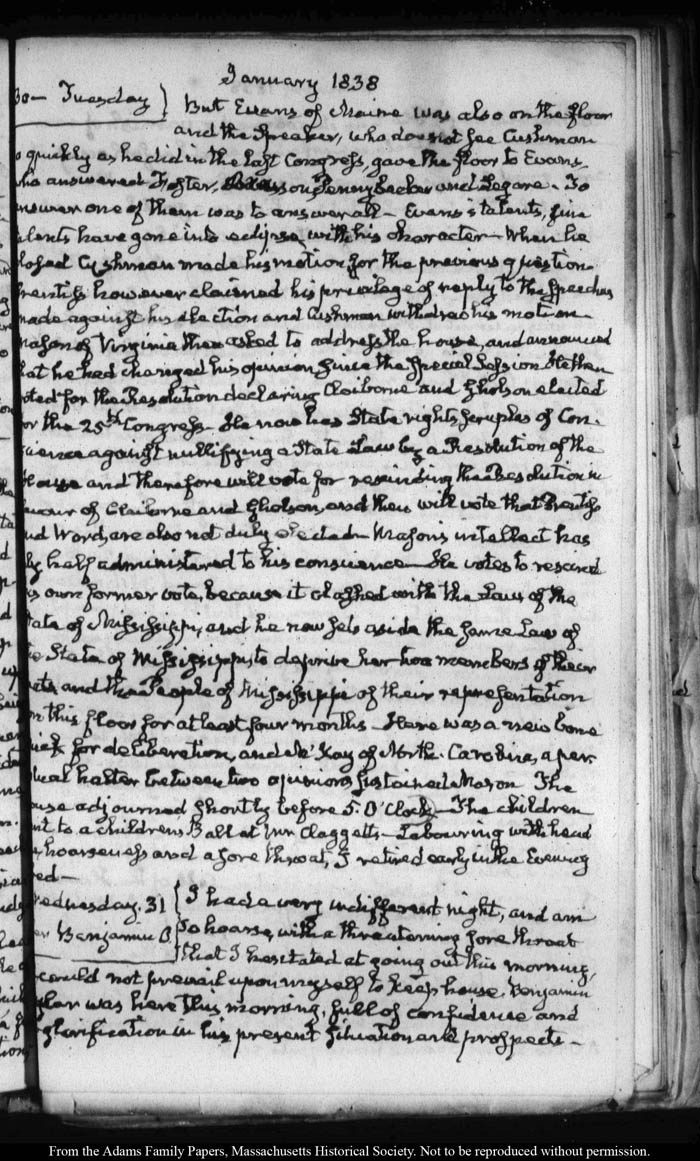 January 1838
30 - Tuesday } But Evans of Maine was also on the floor
and the Speaker, who does not see Cushman
so quickly as he did in the last Congress, gave the floor to Evans
who answered Foster, Pennybacker and Legare. To
answer one of them was to answer all - Evans's talents, fine
talents have gone into eclipse with his character - When he
closed Cushman made his motion for the previous question
Prentiss however claimed his privilege of reply to the speeches
made against his election and Cushman withdrew his motion
Mason of Virginia then asked to address the house, and announced
that he had changed his opinion since the special Session. He then
voted for the Resolution declaring Claiborne and Gholson elected
for the 25th Congress - He now has State rights scruples of Con-
science against nullifying a State Law by a Resolution of the
House and therefore will vote for rescinding the Resolution in
favour of Claiborne and Gholson, and then will vote that Prentiss
and Word, are also not duly elected - Mason's intellect has
by half administered to his conscience - He votes to rescind
his own former vote, because it clashed with the Law of the
State of Mississippi, and he now sets aside the same Law of
the State of Mississippi, to deprive her two members of their
seats and the People of Mississippi of their representation
on this floor for at least four months - Here was a new bone
for deliberation, and McKay of North-Carolina, a per-
petual halter between two opinions sustained Mason. The
house adjourned shortly before 5. O'Clock - The children
went to a childrens Ball at Mrs Claggetts - Labouring with head
hoarseness and a sore throat, I retired early in the Evening
bed -
Wednesday. 31 { I had a very indifferent night, and am
Benjamin O. so hoarse, with a threatening sore throat
that I hesitated at going out this morning,
could not prevail upon myself to keep house. Benjamin
was here this morning, full of confidence and
glorification in his present situation and prospects -
From the Adams Family Papers, Massachusetts Historical Society. Not to be reproduced without permission.